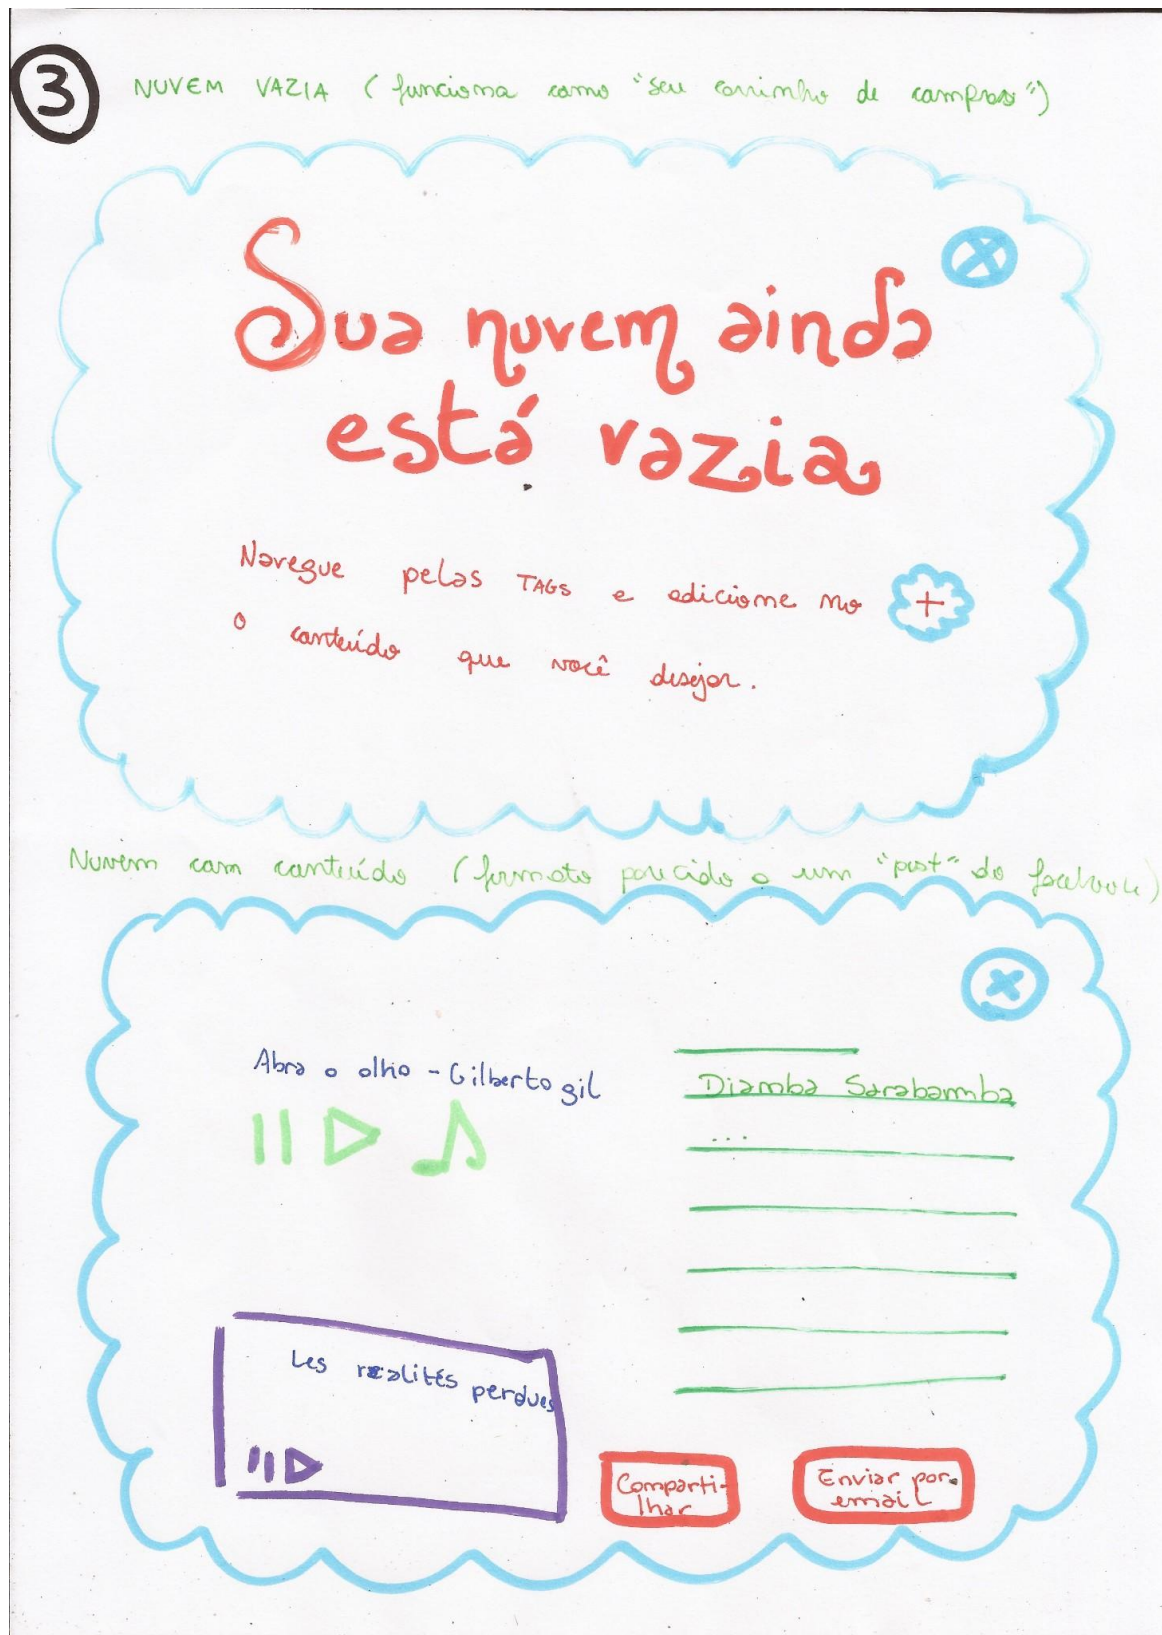 3
NUVEM VAZIA (funciona como "seu carrinho de compras")
Sua nuvem ainda
está vazia
Navegue pelas TAGS e adicione no +
o conteúdo que você desejar.
Nuvem com conteúdo (formato parecido a um "post" do facebook)
Abra o olho - Gilberto gil
Diamba Sarabamba
...
Les realités perdues
Comparti-
lhar
Enviar por
email